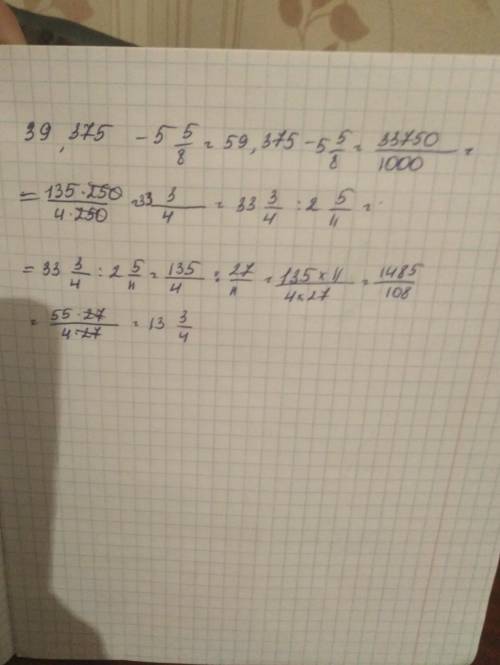 39,375 - 5 5/8 = 59,375 - 5 5/8 = 33750/1000 =
= 135·250/4·250 = 33 3/4 = 33 3/4 : 2 5/11 =
= 33 3/4 : 2 5/11 = 135/4 : 27/11 = 135×11/4×27 = 1485/108
= 55·27/4·27 = 13 3/4